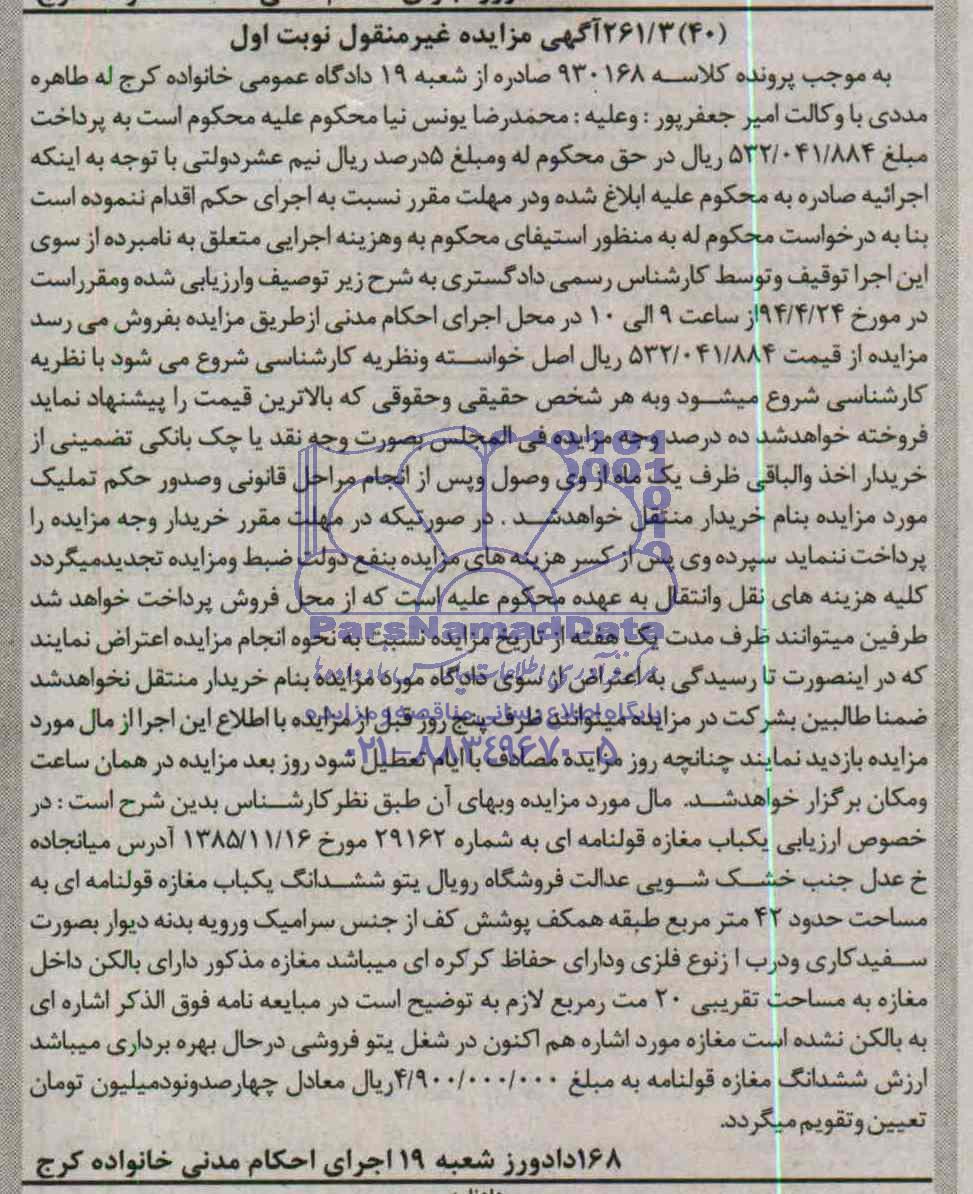 (۴۰)۲۶۱/۳آگهی مزایده غیرمنقول نوبت اول
به موجب پرونده کلاسه ۹۳۰۱۶۸ صادره از شعبه ۱۹ دادگاه عمومی خانواده کرج له طاهره
مددی با وکالت امیر جعفرپور : وعلیه : محمدرضا یونس نیا محکوم علیه محکوم است به پرداخت
مبلغ ۵۳۲/۰۴۱/۸۸۴ ریال در حق محکوم له ومبلغ ۵درصد ریال نیم عشردولتی با توجه به اینکه
اجرائیه صادره به محکوم علیه ابلاغ شده ودر مهلت مقرر نسبت به اجرای حکم اقدام ننموده است
بنا به درخواست محکوم له به منظور استیفای محکوم به وهزینه اجرایی متعلق به نامبرده از سوی
این اجرا توقیف وتوسط کارشناس رسمی دادگستری به شرح زیر توصیف وارزیابی شده ومقرراست
در مورخ ۹۴/۴/۲۴از ساعت ۹ الی ۱۰ در محل اجرای احکام مدنی ازطریق مزایده بفروش می رسد
مزایده از قیمت ۵۳۲/۰۴۱/۸۸۴ ریال اصل خواسته ونظریه کارشناسی شروع می شود با نظریه
کارشناسی شروع میشود وبه هر شخص حقیقی وحقوقی که بالاترین قیمت را پیشنهاد نماید
فروخته خواهدشد ده درصد وجه مزایده فی المجلس بصورت وجه نقد یا چک بانکی تضمینی از
خریدار اخذ والباقی ظرف یک ماه از وی وصول وپس از انجام مراحل قانونی وصدور حکم تملیک
مورد مزایده بنام خریدار منتقل خواهدشد . در صورتیکه در مهلت مقرر خریدار وجه مزایده را
پرداخت ننماید سپرده وی پس از کسر هزینه های مزایده بنفع دولت ضبط ومزایده تجدیدمیگردد
کلیه هزینه های نقل وانتقال به عهده محکوم علیه است که از محل فروش پرداخت خواهد شد
ParsNamadData
طرفین میتوانند ظرف مدت یک هفته از تاریخ مزایده نسبت به نحوه انجام مزایده اعتراض نمایند
که در اینصورت تا رسیدگی به اعتراض از سوی دادگاه مورد مزایده بنام خریدار منتقل نخواهدشد
پایگاه اطلاع رسانی مناقصه و مزایده
ضمنا طالبین بشرکت در مزایده میتوانند ظرف پنج روز قبل از مزایده با اطلاع این اجرا از مال مورد
۰۲۱-۸۸۳۴۹۶۷۰-۵
مزایده بازدید نمایند چنانچه روز مزایده مصادف با ایام تعطیل شود روز بعد مزایده در همان ساعت
ومکان برگزار خواهدشد. مال مورد مزایده وبهای آن طبق نظر کارشناس بدین شرح است : در
خصوص ارزیابی یکباب مغازه قولنامه ای به شماره ۲۹۱۶۲ مورخ ۱۳۸۵/۱۱/۱۶ آدرس میانجاده
خ عدل جنب خشک شویی عدالت فروشگاه رویال پتو ششدانگ یکباب مغازه قولنامه ای به
مساحت حدود ۴۲ متر مربع طبقه همکف پوشش کف از جنس سرامیک ورویه بدنه دیوار بصورت
سفیدکاری ودرب ا زنوع فلزی ودارای حفاظ کرکره ای میباشد مغازه مذکور دارای بالکن داخل
مغازه به مساحت تقریبی ۲۰ مت رمربع لازم به توضیح است در مبایعه نامه فوق الذکر اشاره ای
به بالکن نشده است مغازه مورد اشاره هم اکنون در شغل پتو فروشی درحال بهره برداری میباشد
ارزش ششدانگ مغازه قولنامه به مبلغ ۴/۹۰۰/۰۰۰/۰۰۰ریال معادل چهارصدونودمیلیون تومان
تعیین وتقویم میگردد.
۱۶۸دادورز شعبه ۱۹ اجرای احکام مدنی خانواده کرج